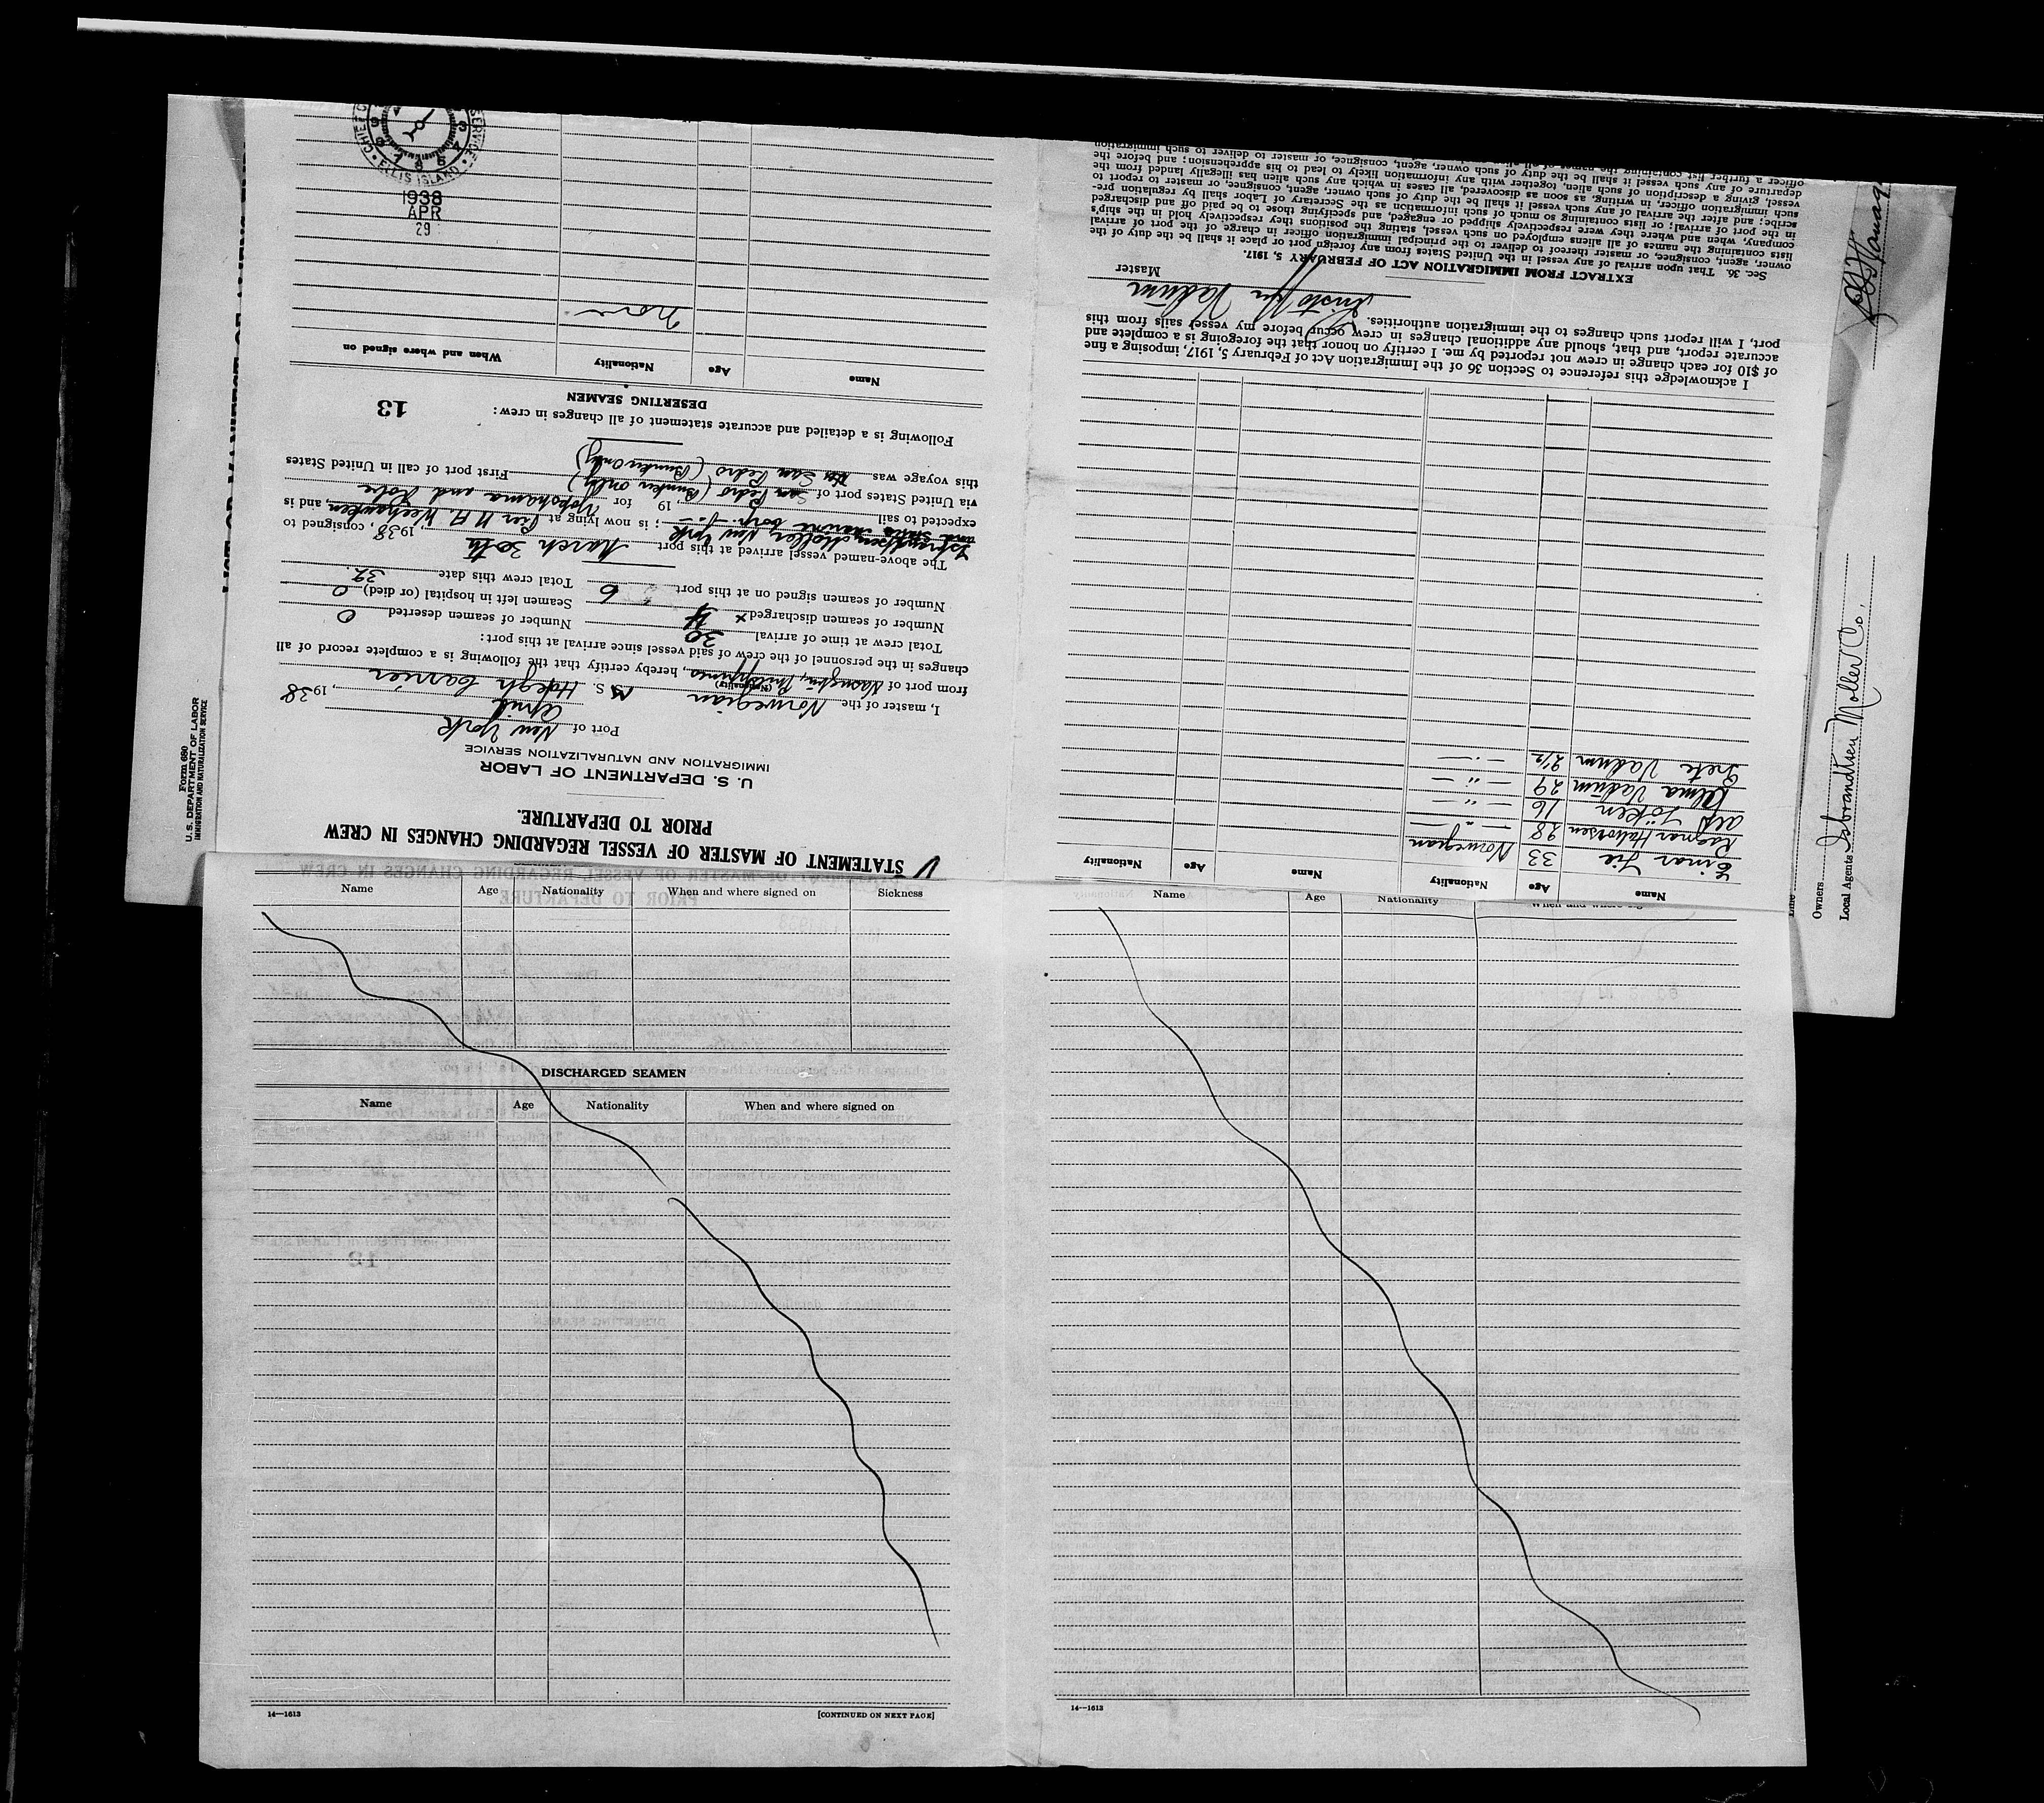 STATEMENT OF MASTER OF VESSEL REGARDING CHANGES IN CREW
PRIOR TO DEPARTURE.
U. S. DEPARTMENT OF LABOR
IMMIGRATION AND NATURALIZATION SERVICE
Port of New York
April, 1938
I, master of the Norwegian M S. Höegh Carrier
(Nationality)
from port of Philippines, hereby certify that the following is a complete record of all
changes in the personnel of the crew of said vessel since arrival at this port:
Total crew at time of arrival 30 Number of seamen deserted 0
Number of seamen discharged x 4 Seamen left in hospital (or died) 0
Number of seamen signed on at this port 6 Total crew this date 32.
The above-named vessel arrived at this port March 30th, 1938, consigned to
Isbrandtsen Moller New York; is now lying at Pier N A. Weehawken, and is
expected to sail 19 for Yokohama and Kobe
via United States port of San Pedro (Bunker only) First port of call in United States
this voyage was San Pedro (Bunker only)
Following is a detailed and accurate statement of all changes in crew:
13
DESERTING SEAMEN
Name Age Nationality When and where signed on
None
1938
APR
29
ELLIS ISLAND
Name Age Nationality Name Age Nationality
Einar Lie 33 Norwegian
Ragnar Halvorsen 28 — " —
Alf 16 — " —
Alma Vadum 29 — " —
Grete Vadum 2 1/2 — " —
I acknowledge this reference to Section 36 of the Immigration Act of February 5, 1917, imposing a fine
of $10 for each change in crew not reported by me. I certify on honor that the foregoing is a complete and
accurate report, and that, should any additional changes in crew occur before my vessel sails from this
port, I will report such changes to the immigration authorities.
Kristoffer Vadum
Master
EXTRACT FROM IMMIGRATION ACT OF FEBRUARY 5, 1917.
Sec. 36. That upon arrival of any vessel in the United States from any foreign port or place it shall be the duty of the
owner, agent, consignee, or master thereof to deliver to the principal immigration officer in charge of the port of arrival
lists containing the names of all aliens employed on such vessel, stating the positions they respectively hold in the ship's
company, when and where they were respectively shipped or engaged, and specifying those to be paid off and discharged
in the port of arrival; or lists containing so much of such information as the Secretary of Labor shall by regulation pre-
scribe; and after the arrival of any such vessel it shall be the duty of such owner, agent, consignee, or master to report to
such immigration officer, in writing, as soon as discovered, all cases in which any such alien has illegally landed from the
vessel, giving a description of such alien, together with any information likely to lead to his apprehension; and before the
departure of any such vessel it shall be the duty of such owner, agent, consignee, or master to deliver to such immigration
officer a further list containing the names of all
Form 680
U. S. DEPARTMENT OF LABOR
IMMIGRATION AND NATURALIZATION SERVICE
Owners
Local Agents Isbrandtsen Moller Co.
Name Age Nationality When and where signed on Sickness
DISCHARGED SEAMEN
Name Age Nationality When and where signed on
14—1613 [CONTINUED ON NEXT PAGE]
Name Age Nationality When and where
14—1613